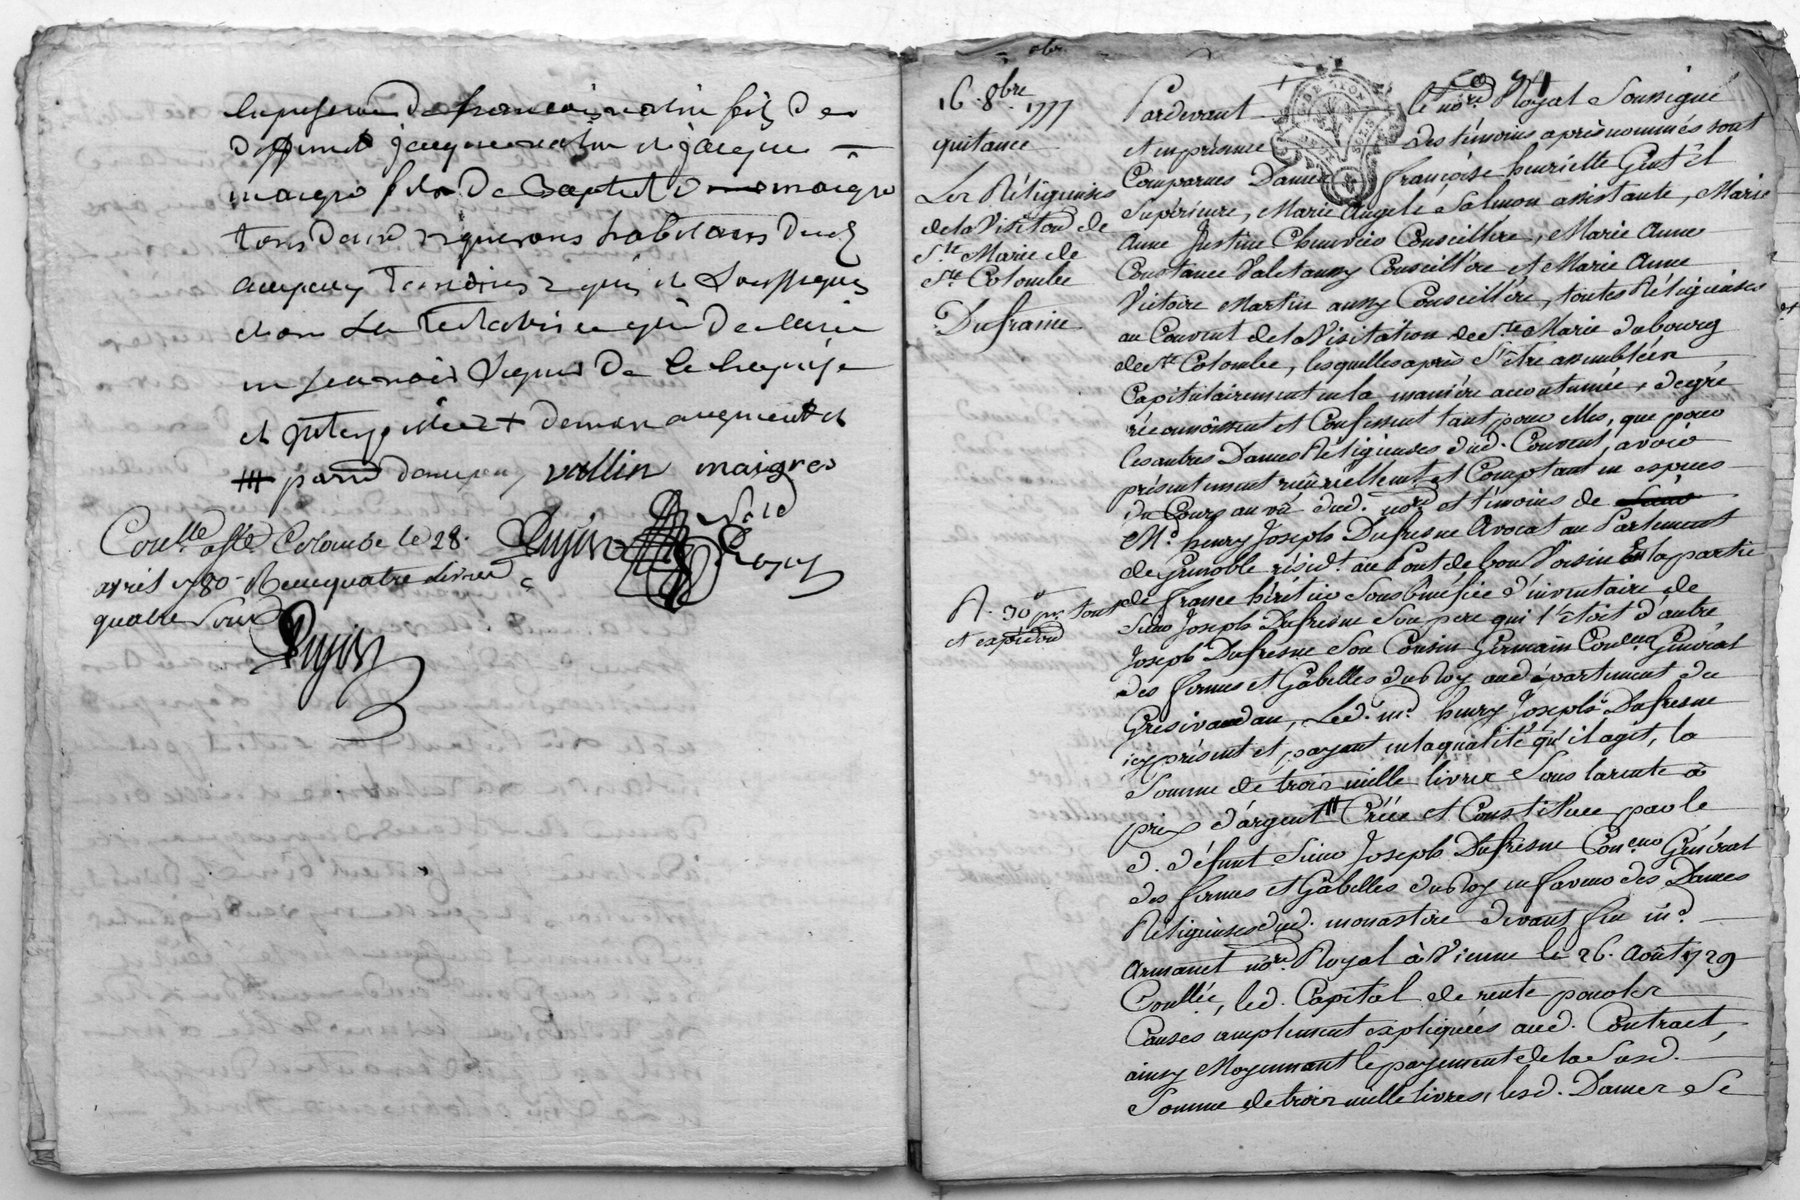 en presence de francois vallin fils de
deffunt jacque vallin et jacque
maigre fils de Baptiste maigre
tous deux vignerons habitans dud.
ampuy temoins requis et soussignés
et non la testatrice qui a declaré
ne scavoir signer de ce enquise
et interpellée
par d'ampuy vallin maigre
Coullé
Dujon
Contllé a Ste Colombe le 28.
avril 1780 Reçu quatre livres
quatre sous
Dujon
16. 8bre. 1777
quitance
Les Réligieuses
de la Visitaon de
Ste Marie de
Ste Colombe
Dufraine
R. 30s pr. tout
et expédié
Pardevant le nore. Royal Soussigné
et en présence des témoins aprés nommés sont
Comparues Dames françoise henriette Gustel
Supérieure, Marie Angele Salmon assistante, Marie
Anne Justine Conseillére, Marie Anne
Constance aussy Conseillére et Marie Anne
Victoire Martin aussy Conseillére, toutes Réligieuses
au Couvent de la Visitation de Ste Marie du bourg
de Ste Colombe, lesquelles aprés S'être assemblées
Capitulairement en la maniére accoutumée de gré
réconnoissent et Confessent tant pour elles, que pour
les autres Dames Réligieuses dud. Couvent, avoir
présentement réellement et Comptant en espéces
du Cours au vû dud. nore et témoins de
Me. henry Joseph Dufresne Avocat au Parlement
de Grenoble résidt. au Pont de bon Voisin En la partie
de france héritier Sous bénéfice d'inventaire de
Sieur Joseph Dufresne Son pere qui l'étoit d'autre
Joseph Dufresne Son Cousin Germain Con.eur Général
des fermes et Gabelles du Roy au département du
Grésivaudan, Led. me. henry Joseph Dufresne
icy présent et payant en la qualité qu'il agit, la
Somme de trois mille livres Sous la rente à
prix d'argent Créée et Constituée par le
d. défunt Sieur Joseph Dufresne Con.eur Général
des fermes et Gabelles du Roy en faveur des Dames
Réligieuses dud. monastere devant feu me.
Armanet nore. Royal à Vienne le 26. Août 1729
Contllé, led. Capital de rente pour les
Causes amplement expliquées aud. Contract,
ainsy Moyennant le payement de la Susd.
Somme de trois mille livres, lesd. Dames Se